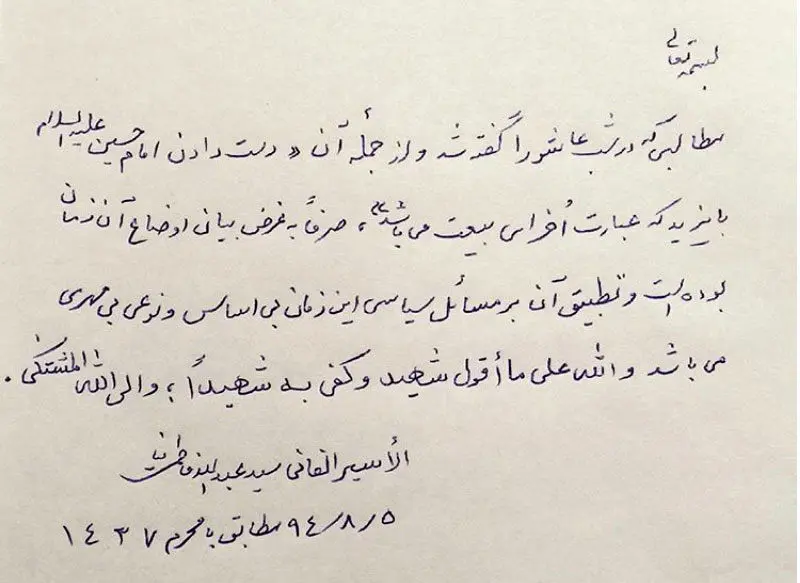 بسمه تعالی
مطالبی که در شب عاشورا گفته شد و از جمله آن «دست دادن امام حسین علیه السلام
با یزید که عبارت اُخرای بیعت می باشد»، صرفاً به غرض بیان اوضاع آن زمان
بوده است و تطبیق آن بر مسائل سیاسی این زمان بی اساس و نوعی بی مهری
می باشد والله علی ما أقول شهید وکفی به شهیداً، والی الله المشتکی.
الأسیر الفانی سید عبدالله فاطمی نیا
۹۴/۸/۵ مطابق با محرم ۱۴۳۷